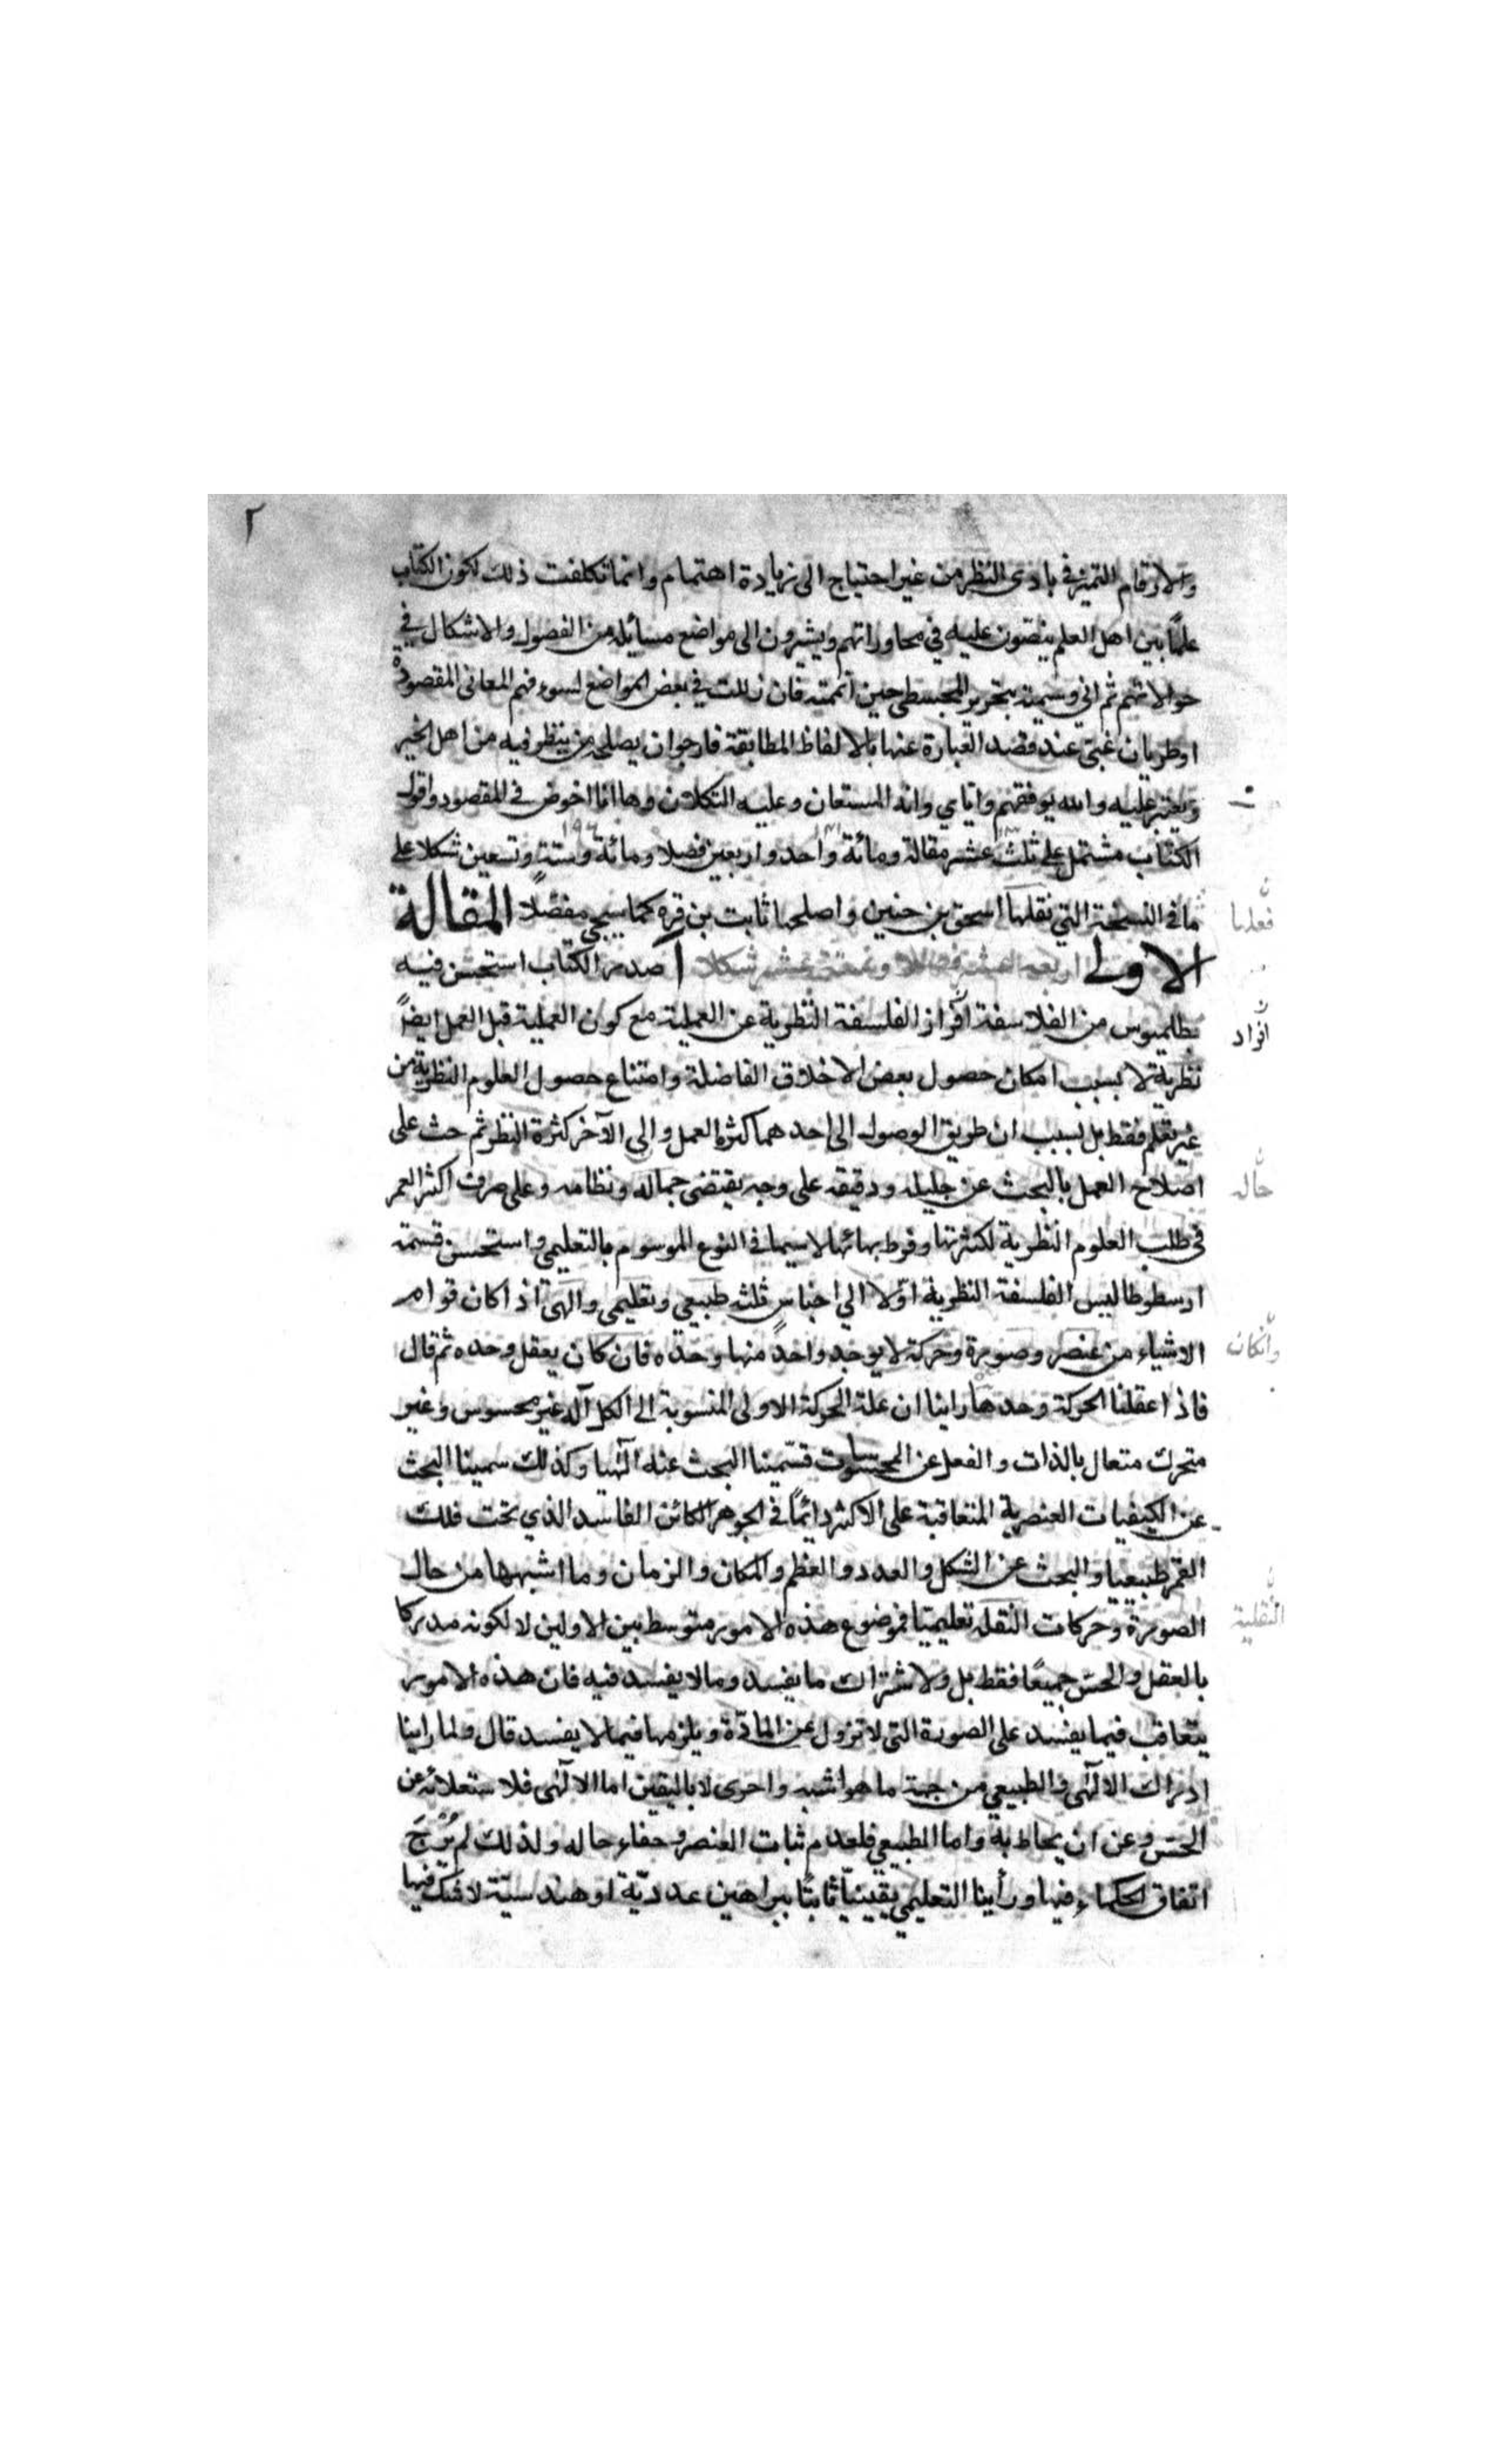 ٢
والارقام للتميز في بادى النظر من غير احتياج الى زيادة اهتمام وانما تكلفت ذلك لكون الكتاب
علما بين اهل العلم ينصّون عليه في محاوراتهم ويشيرون الى مواضع مسائله من الفصول والاشكال في
حوالاتهم ثم اني وسمته بتحرير المجسطي حين اتممته فان زللت في بعض المواضع لسوء فهم المعاني المقصودة
او طريان عند قصد العبارة عنها بالالفاظ المطابقة فارجو ان يصلحه من ينظر فيه من اهل الخير
ويعثر عليه والله يوفقهم واياي وانه المستعان وعليه التكلان وها انا اخوض في المقصود واقول
الكتاب مشتمل على ثلث عشر مقالة ومائة واحد واربعين فصلا ومائة وستة وتسعين شكلا على
١٣ ١٤١ ١٩٦
ما في النسخة التي نقلها اسحق بن حنين واصلحها ثابت بن قره كما سيجي مفصّلاً المقالة
فعلها
الاولى اربعة عشر فصلا وستة عشر شكلا آ صدر الكتاب استحسن فيه
بطلميوس من الفلاسفة افراز الفلسفة النظرية عن العملية مع كون العملية قبل العمل ايضاً
افراد
نظرية لا بسبب امكان حصول بعض الاخلاق الفاضلة وامتناع حصول العلوم النظرية من
غير تعلم فقط بل بسبب ان طريق الوصول الى احدهما كثرة العمل والى الآخر كثرة النظر ثم حث على
اصلاح العمل بالبحث عن جليله ودقيقه على وجه يقتضى جماله ونظامه وعلى صرف اكثر العمر
حاله
في طلب العلوم النظرية لكثرتها وفرط بهائها لاسيما في النوع الموسوم بالتعليمي واستحسن قسمة
ارسطوطاليس الفلسفة النظرية اوّلا الي اجناس ثلثه طبيعي وتعليمي والهى اذا كان قوام
الاشياء من عنصر وصورة وحركة لا يوجد واحد منها وحده فان كان يعقل وحده ثم قال
وانكان
فاذا عقلنا الحركة وحدها راينا ان علة الحركة الاولى المنسوبة الى الكل آله غير محسوس وغير
متحرك متعال بالذات والفعل عن المحسوسات قسّمينا البحث عنه آلهيا وكذلك سمينا البحث
عن الكيفيات العنصرية المتعاقبة على الاكثر دائماً في الجوهر الكائن الفاسد الذي تحت فلك
القمر طبيعيا والبحث عن الشكل والعدد والعظم والمكان والزمان وما اشبهها من حال
الصورة وحركات النقله تعليميّا فموضوع هذه الامور متوسط بين الاولين لا لكونه مدركا
النقلية
بالعقل والحسّ جميعًا فقط بل ولاشتراك ما يفسد وما لا يفسد فيه فان هذه الامور
يتعاقب فيما يفسد على الصورة التى لا تزول عن المادّة ويلزمها فيما لا يفسد قال ولما راينا
ادراك الالهى والطبيعي من جهة ما هو اشبه واحرى لا باليقين اما الالهى فلاستعلائه عن
الحسّ وعن ان يحاط به واما الطبيعي فلعدم ثبات العنصر وخفاء حاله ولذلك لم يُرْجَ
اتفاق الحكماء فيها ورأينا التعليمي يقينيّا ثابتًا ببراهين عدديّة او هندسيّة لا شك فيها